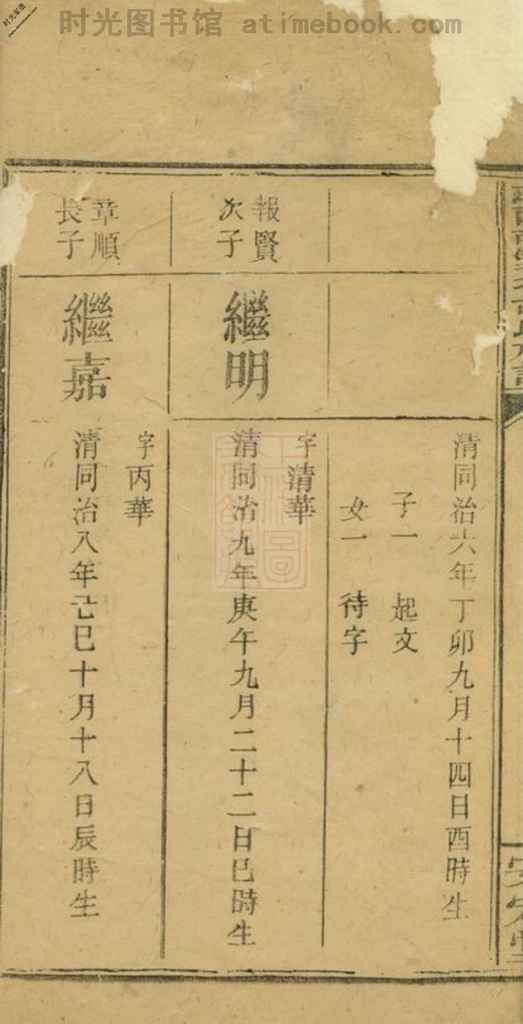 时光图书馆 atimebook.com
清同治六年丁卯九月十四日酉時生
子一 起文
女一 待字
報賢
次子
繼明
字清華
清同治九年庚午九月二十二日巳時生
章順
長子
繼嘉
字丙華
清同治八年己巳十月十八日辰時生